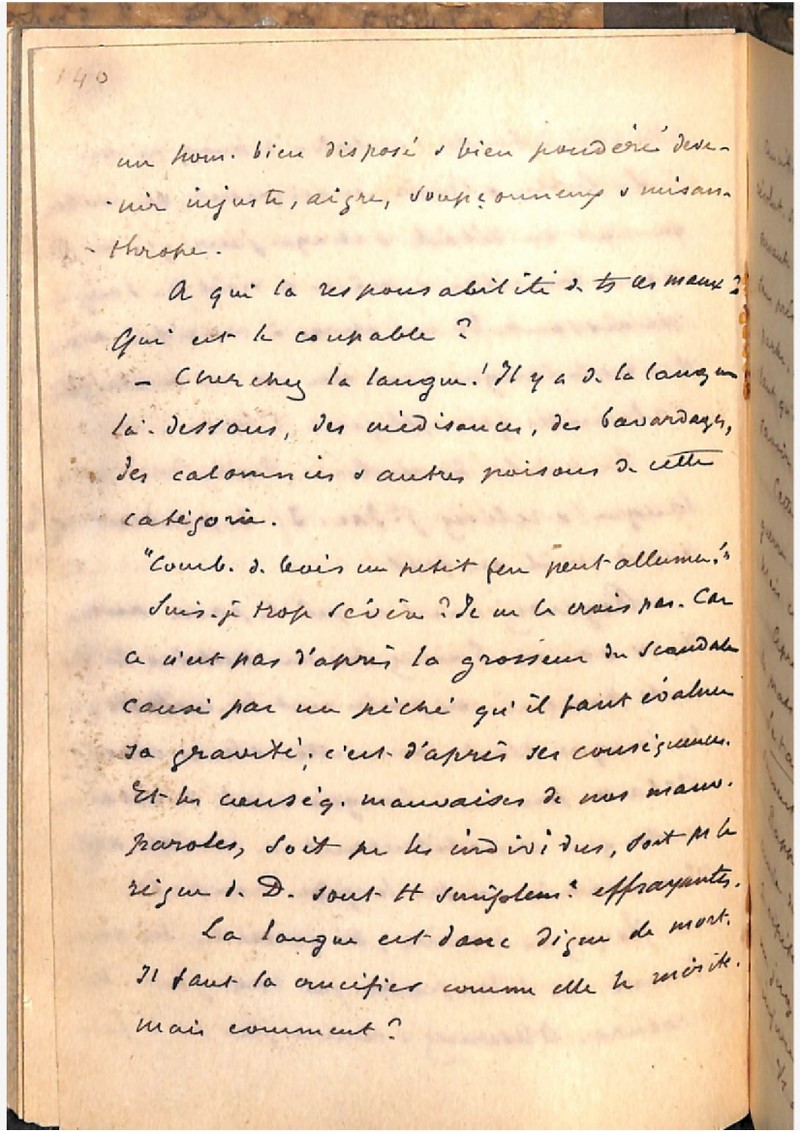 140
un hom. bien disposé & bien pondéré deve-
nir injuste, aigre, soupçonneux & misan-
thrope.
A qui la responsabilité d. ts ces maux ?
Qui est le coupable ?
— Cherchez la langue ! Il y a de la langue
là-dessous, des médisances, des bavardages,
des calomnies & autres poisons de cette
catégorie.
"Comb. d. bois un petit feu peut allumer !"
Suis-je trop sévère ? Je ne le crois pas. Car
ce n'est pas d'après la grosseur du scandale
causé par un péché qu'il faut évaluer
sa gravité ; c'est d'après ses conséquences.
Et les conséq. mauvaises de nos mauv.
paroles, soit pr les individus, soit pr le
règne d. D. sont tt simplemt effrayantes.
La langue est donc digne de mort.
Il faut la crucifier comme elle le mérite.
Mais comment ?